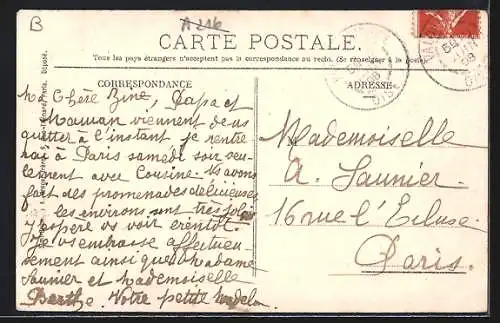 B
A 216
CARTE POSTALE.
Tous les pays étrangers n'acceptent pas la correspondance au recto. (Se renseigner à la poste).
CORRESPONDANCE
ADRESSE
Ma Chère Zine, Papa et
Maman viennent de ns
quitter à l'instant je rentre
rai à Paris samedi soir seu-
lement avec Cousine. Ns avons
fait des promenades délicieuses
les environs sont très jolis
J'espère vs voir bientôt.
Je vs embrasse affectueu
sement ainsi que Madame
Saunier et Mademoiselle
Berthe. Votre petite
Mademoiselle
A. Saunier.
16 rue l'Ecluse.
Paris.